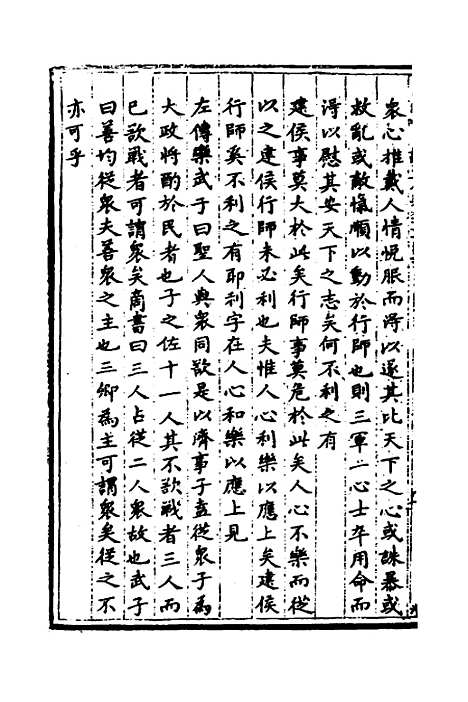 衆心推戴人情悅服而得以遂其比天下之心或誅暴或
救亂或敵愾順以動於行師也則三軍一心士卒用命而
得以慰其安天下之志矣何不利之有
建侯事莫大於此矣行師事莫危於此矣人心不樂而從
以之建侯行師未必利也夫惟人心利樂以應上矣建侯
行師奚不利之有耶利字在人心和樂以應上見
左傳欒武子曰聖人與衆同欲是以濟事子盍從衆子為
大政将酌於民者也子之佐十一人其不欲戰者三人而
已欲戰者可謂衆矣商書曰三人占從二人衆故也武子
曰善均從衆夫善衆之主也三卿為主可謂衆矣從之不
亦可乎